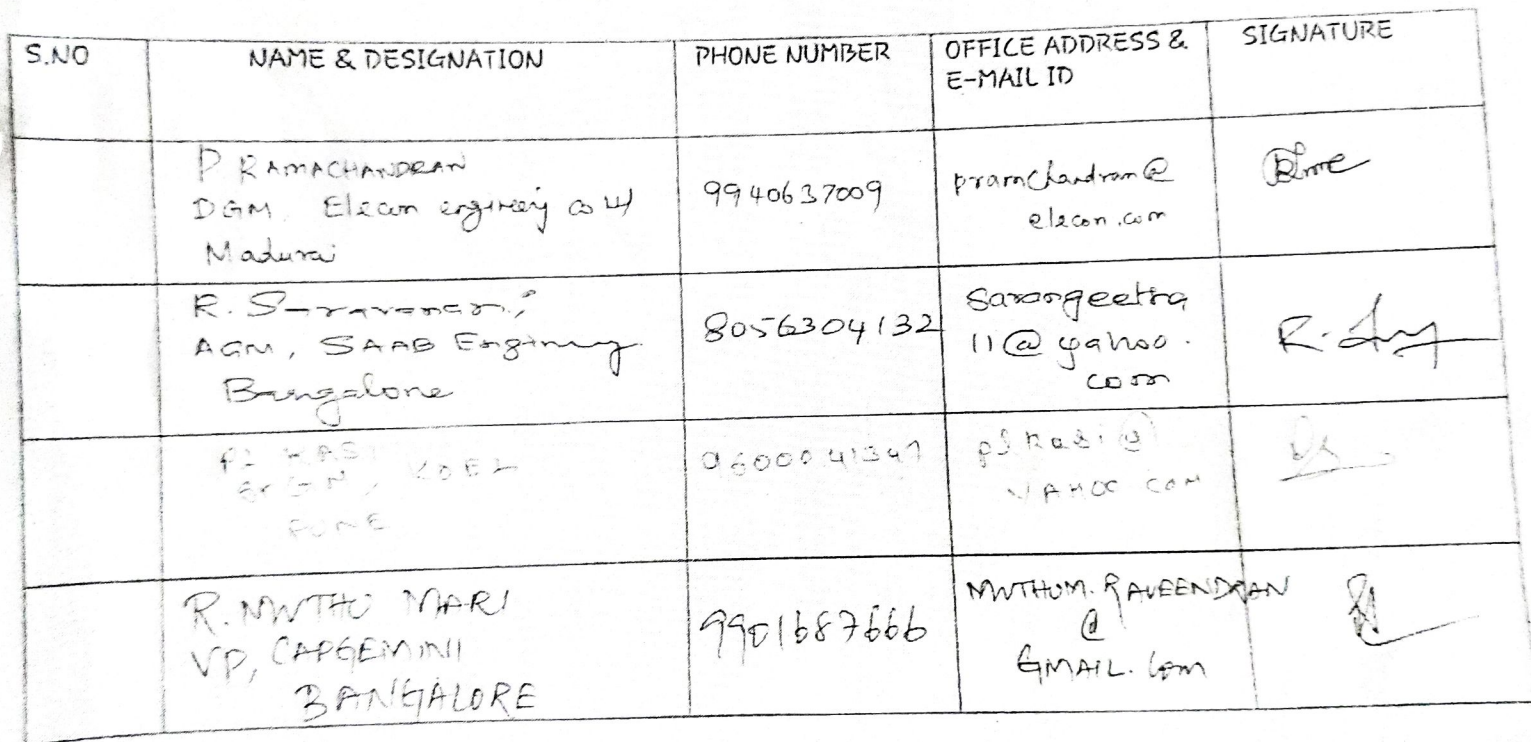 S.NO
NAME & DESIGNATION
PHONE NUMBER
OFFICE ADDRESS &
E-MAIL ID
SIGNATURE
P RAMACHANDRAN
DGM, Elecon
Madurai
9940637009
pramchandran@
elecon.com
R. Saravanan,
AGM, SAAB
Bangalore
8056304132
11@yahoo.
com
R.
PL KASI
Sr GM, KOEL
PUNE
9600041347
plkasi@
YAHOO COM
R. MUTHU MARI
VP, CAPGEMINI
BANGALORE
9901687666
MUTHUM.RAVEENDRAN
@
GMAIL.Com